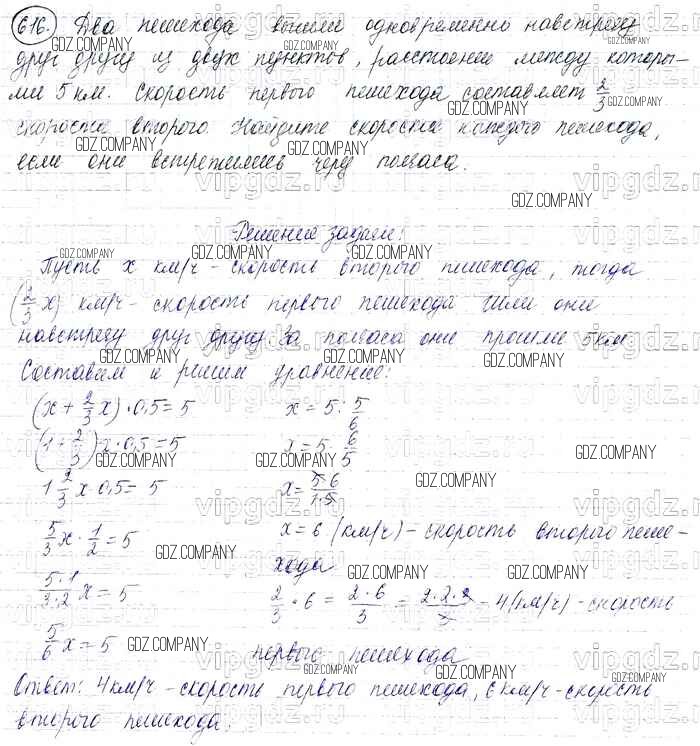 616. Два пешехода вышли одновременно навстречу
друг другу из двух пунктов, расстояние между которы-
ми 5 км. Скорость первого пешехода составляет 2/3
скорости второго. Найдите скорости каждого пешехода,
если они встретились через полчаса.
Решение задачи:
Пусть x км/ч - скорость второго пешехода, тогда
(2/3 x) км/ч - скорость первого пешехода. Шли они
навстречу друг другу. За полчаса они прошли 5 км.
Составим и решим уравнение:
(x + 2/3 x) · 0,5 = 5
(1 + 2/3) x · 0,5 = 5
1 2/3 x · 0,5 = 5
5/3 x · 1/2 = 5
5·1/3·2 x = 5
5/6 x = 5
x = 5 : 5/6
x = 5 · 6/5
x = 5·6/1·5
x = 6 (км/ч) - скорость второго пеше-
хода
2/3 · 6 = 2·6/3 = 4 (км/ч) - скорость
первого пешехода
Ответ: 4 км/ч - скорость первого пешехода, 6 км/ч - скорость
второго пешехода.
GDZ.COMPANY
vipgdz.ru